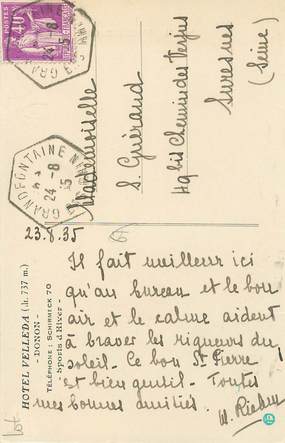 40
GRANDFONTAINE
24 -8
35
Mademoiselle
S. Guéraud
49 bis Chemin des Verjus
Suresnes
(Seine)
GRANDFONTAINE
24 -8
35
HOTEL VELLEDA (alt. 737 m.)
- DONON -
TÉLÉPHONE : SCHIRMECK 70
Sports d'Hiver
23.8.35
Il fait meilleur ici
qu'au bureau et le bon
air et le calme aident
à braver les rigueurs du
soleil. Ce bon St Pierre
est bien gentil. Toutes
mes bonnes amitiés.